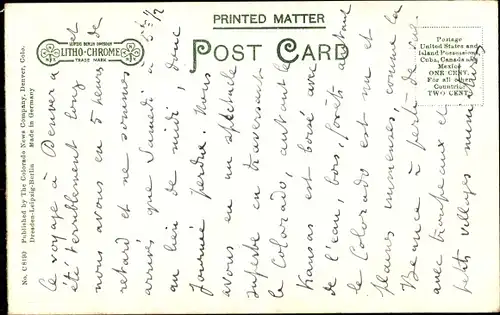 PRINTED MATTER
POST CARD
LEIPZIG BERLIN DRESDEN
LITHO-CHROME
TRADE MARK
Postage
United States and
Island Possessions
Cuba, Canada and
Mexico
ONE CENT.
For all other
Countries
TWO CENT.
No. C8199 Published by The Colorado News Company, Denver, Colo.
Dresden-Leipzig-Berlin Made in Germany
Ce voyage à Denver a
été terriblement long et
nous avons eu 5 heures de
retard et ne sommes
arrivés que Samedi à 5h 1/2
au lieu de midi donc
journée perdue. Nous
avons eu un spectacle
superbe en traversant
le Colorado, autant le
Kansas est boisé avec
de l'eau, bois, forêts autant
le Colorado est nu et
plaines immenses comme la
Beauce à perte de vue
avec troupeaux et
petits villages